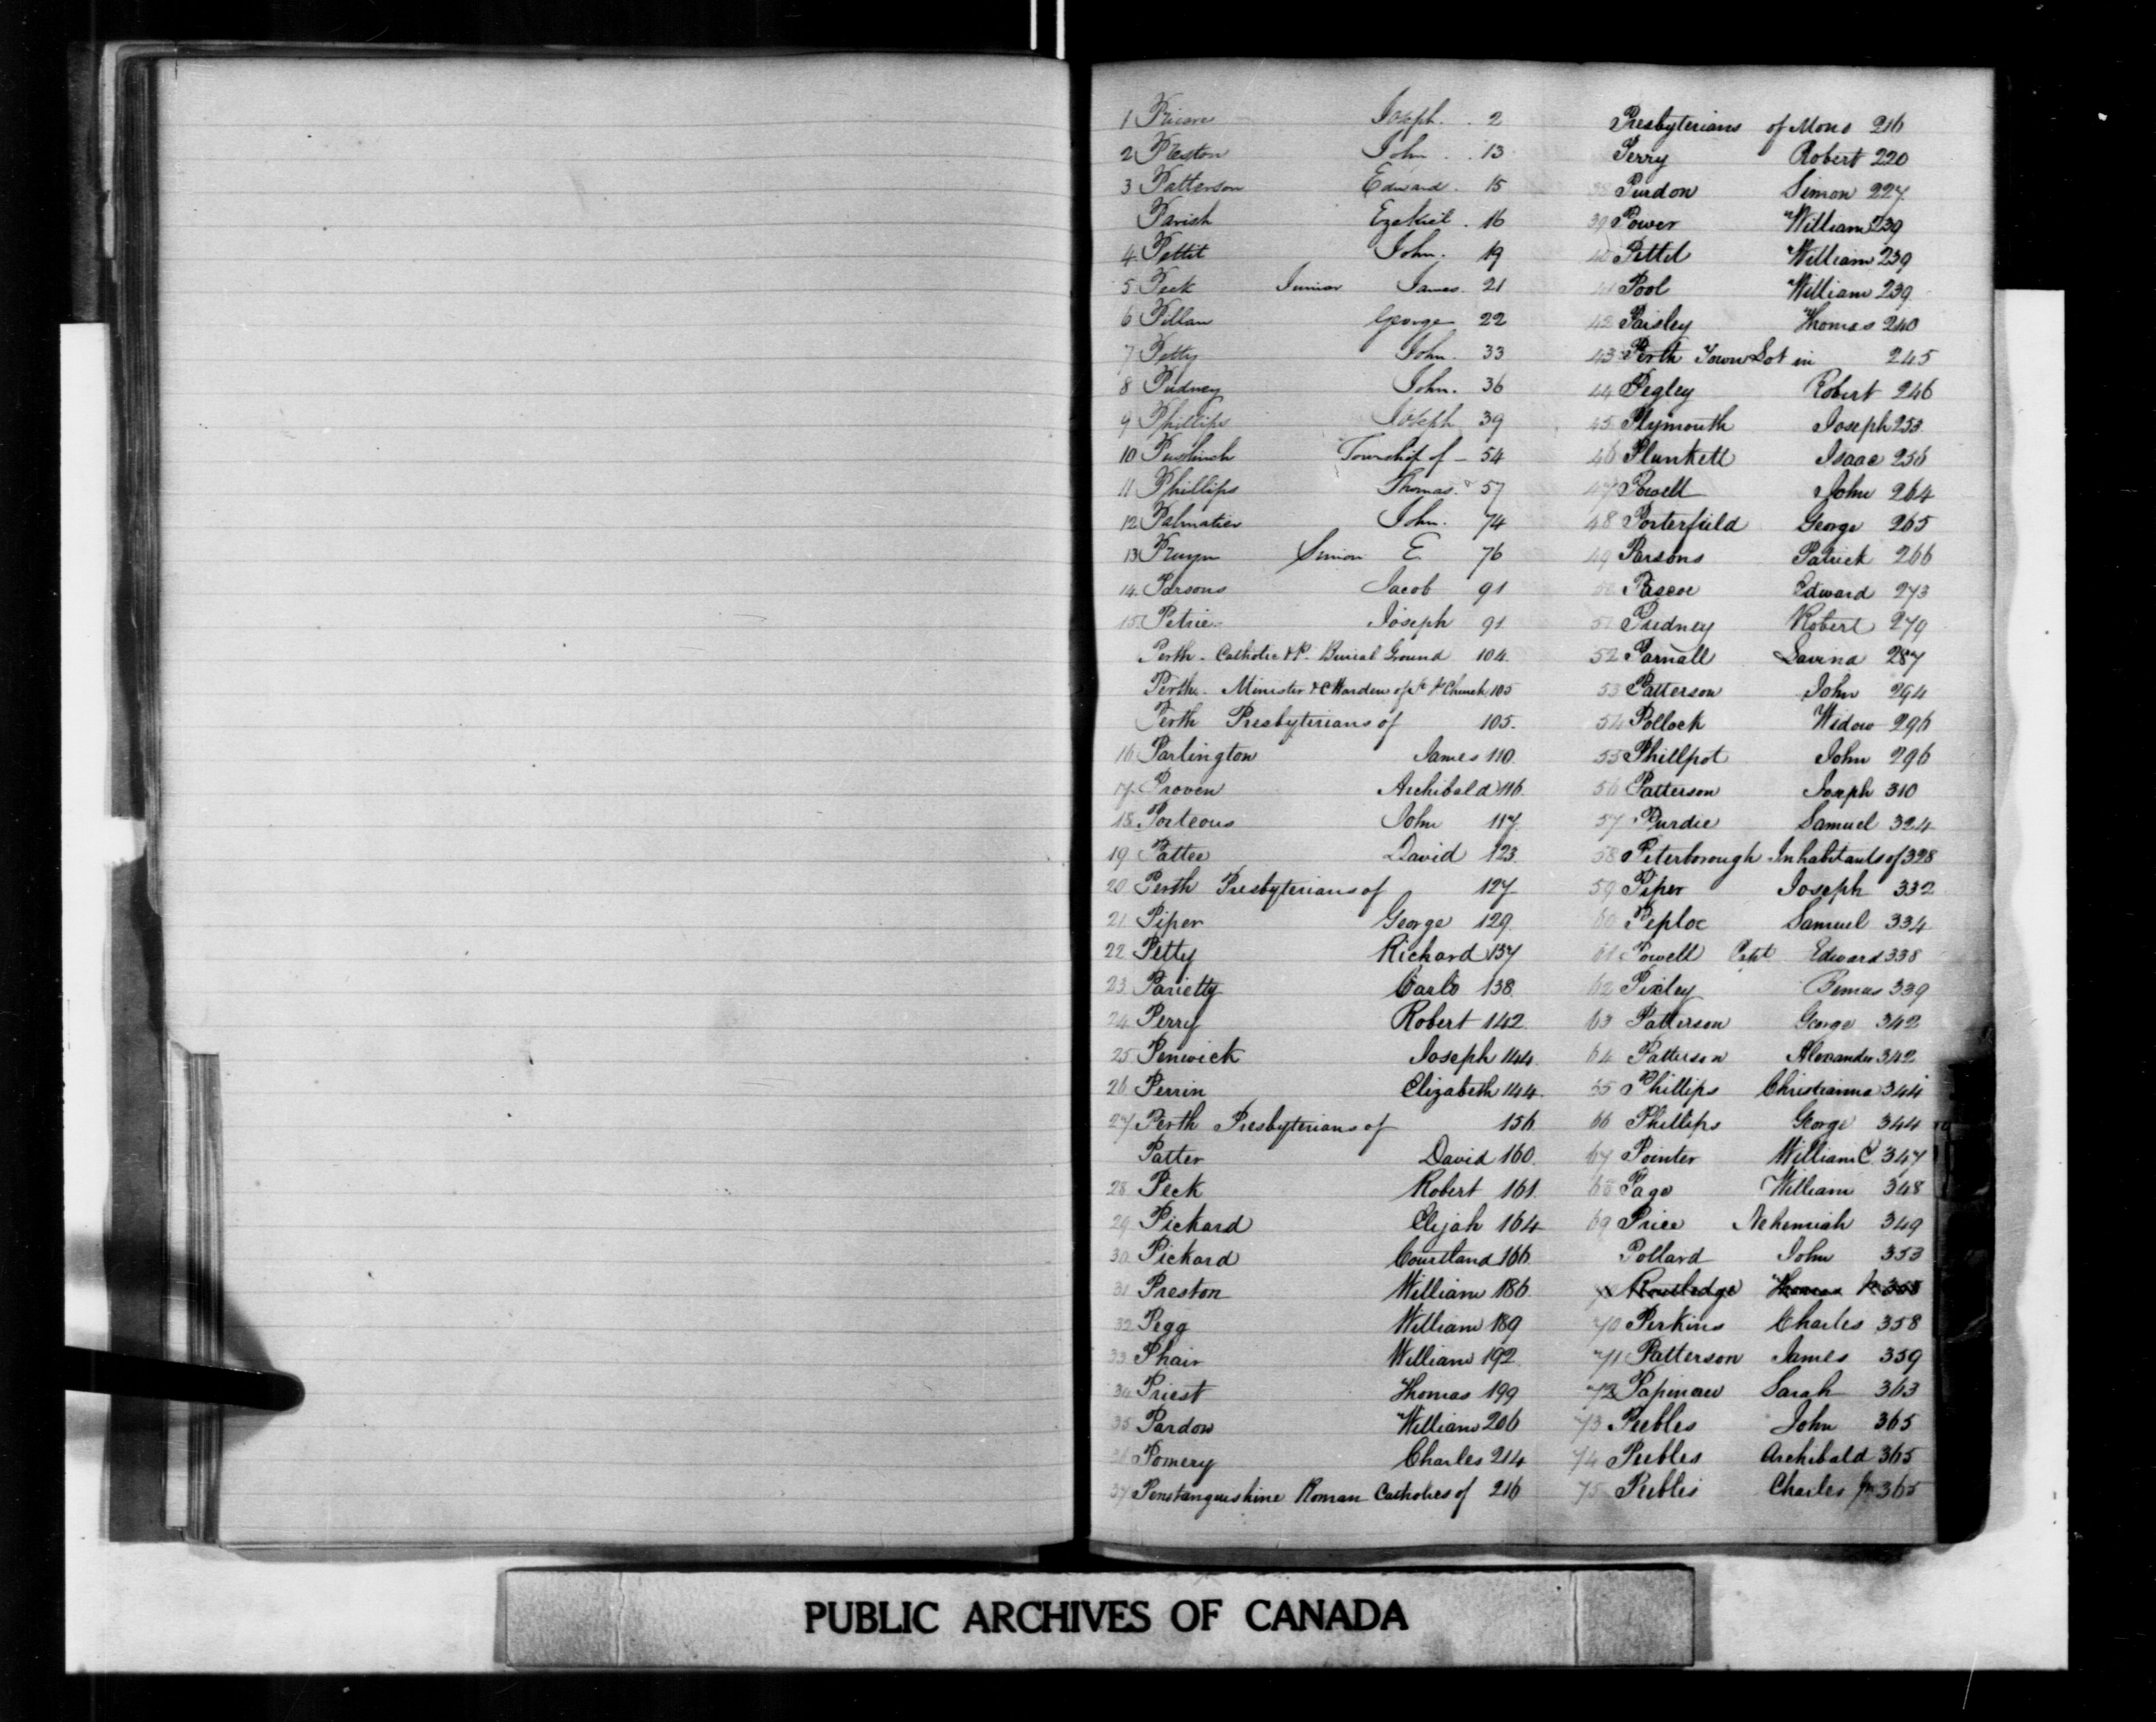 1 Joseph. 2
2 Preston John 13
3 Patterson Edward 15
Parish Ezekiel 16
4 Pettit John. 19
5 Peck Junior James 21
6 Pillan George 22
7 Petty John. 33
8 Pudney John. 36
9 Phillips Joseph 39
10 Puslinch Township of 54
11 Phillips Thomas 57
12 Palmatier John. 74
13 Pruyn Simon E. 76
14 Parsons Jacob 91
15 Petrie Joseph 91
Perth - Catholic & P. Burial Ground 104
Perth - Minister & C Warden of St J Church 105
Perth Presbyterians of 105.
16 Parlington James 110
17 Proven Archibald 116
18 Porteous John 117
19 Pattee David 123
20 Perth Presbyterians of 127
21 Piper George 129
22 Petty Richard 137
23 Parietty Carlo 138
24 Perry Robert 142
25 Penwick Joseph 144
26 Perrin Elizabeth 144
27 Perth Presbyterians of 156
Patter David 160
28 Peck Robert 161
29 Pickard Elijah 164
30 Pickard Courtland 166
31 Preston William 186
32 Pegg William 189
33 Phair William 192
34 Priest Thomas 199
35 Pardow William 206
36 Pomery Charles 214
37 Penetanguishine Roman Catholics of 216
Presbyterians of Mono 216
Perry Robert 220
38 Purdon Simon 227
39 Power William 239
40 Pettit William 239
41 Pool William 239
42 Paisley Thomas 240
43 Perth Town Lot in 245
44 Pegley Robert 246
45 Plymouth Joseph 253
46 Plunkett Isaac 256
47 Powell John 264
48 Porterfield George 265
49 Parsons Patrick 266
50 Pascoe Edward 273
51 Pudney Robert 279
52 Parnall Lavina 287
53 Patterson John 294
54 Pollock Widow 296
55 Phillpot John 296
56 Patterson Joseph 310
57 Purdie Samuel 324
58 Peterborough Inhabitants of 328
59 Piper Joseph 332
60 Peploe Samuel 334
61 Powell Capt Edward 338
62 Pixley 339
63 Patterson George 342
64 Patterson Alexander 342
65 Phillips Christianna 344
66 Phillips George 344
67 Pointer William C. 347
68 Page William 348
69 Price Nehemiah 349
Pollard John 353
Routledge Thomas
70 Perkins Charles 358
71 Patterson James 359
72 Papineau Sarah 363
73 Peebles John 365
74 Peebles Archibald 365
75 Peebles Charles Jr 365
PUBLIC ARCHIVES OF CANADA